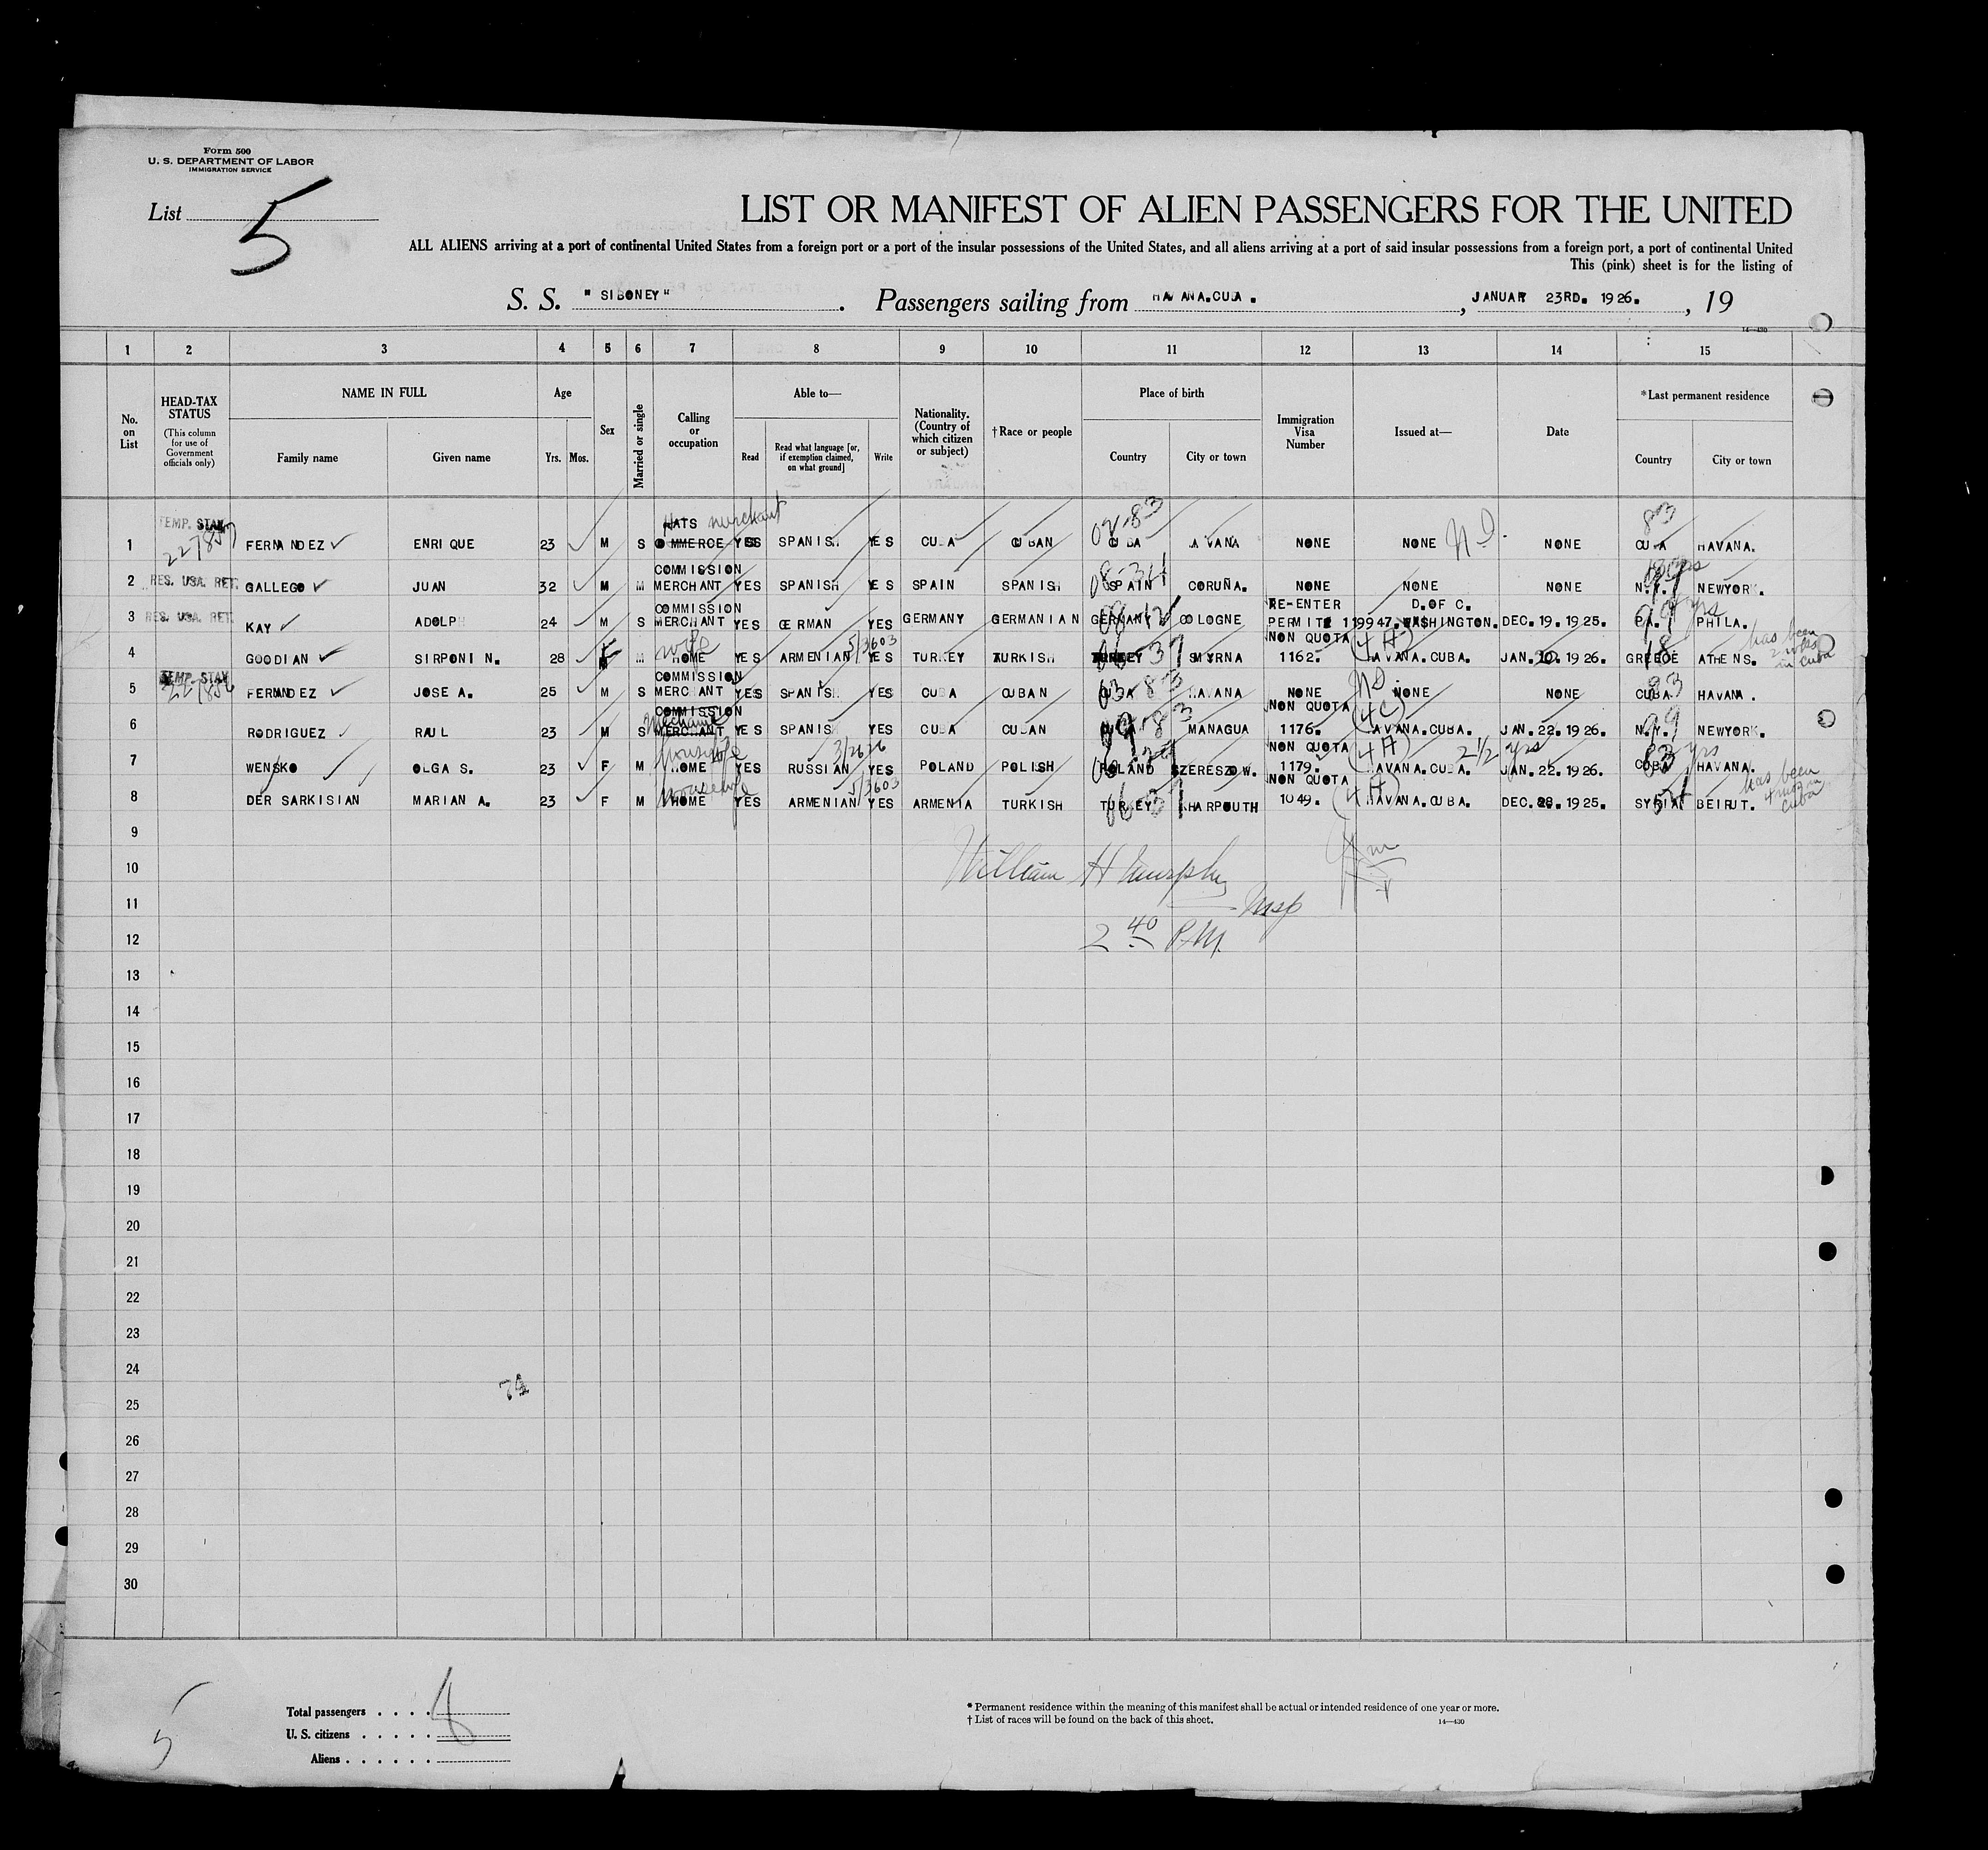 Form 500
U. S. DEPARTMENT OF LABOR
IMMIGRATION SERVICE
List 5
LIST OR MANIFEST OF ALIEN PASSENGERS FOR THE UNITED
ALL ALIENS arriving at a port of continental United States from a foreign port or a port of the insular possessions of the United States, and all aliens arriving at a port of said insular possessions from a foreign port, a port of continental United
This (pink) sheet is for the listing of
S. S. "SIBONEY". Passengers sailing from HAVANA.CUBA., JANUAR 23RD. 1926., 19
14—430
1 2 3 4 5 6 7 8 9 10 11 12 13 14 15
No. on List
HEAD-TAX STATUS (This column for use of Government officials only)
NAME IN FULL
Family name Given name
Age
Yrs. Mos.
Sex
Married or single
Calling or occupation
Able to—
Read Read what language [or, if exemption claimed, on what ground] Write
Nationality. (Country of which citizen or subject)
†Race or people
Place of birth
Country City or town
Immigration Visa Number
Issued at—
Date
*Last permanent residence
Country City or town
TEMP. STAY HATS merchant 02-83 83
1 FERNANDEZ ENRIQUE 23 M S COMMERCE YES SPANISH YES CUBA CUBAN CUBA HAVANA NONE NONE NONE CUBA HAVANA.
COMMISSION
2 RES. USA. RET. GALLEGO JUAN 32 M M MERCHANT YES SPANISH YES SPAIN SPANISH SPAIN CORUÑA. NONE NONE NONE N.Y. NEWYORK.
COMMISSION RE-ENTER D.OF C. yrs
3 RES. USA. RET. KAY ADOLPH 24 M S MERCHANT YES GERMAN YES GERMANY GERMANIAN GERMANY COLOGNE PERMIT# 119947. WASHINGTON. DEC.19.1925. PA. PHILA.
wife 5/3603 NON QUOTA (4A) has been 2 wks in Cuba
4 GOODIAN SIRPONI N. 28 F M HOME YES ARMENIAN YES TURKEY TURKISH TURKEY SMYRNA 1162. HAVANA.CUBA. JAN.20.1926. GREECE ATHENS.
TEMP. STAY 227856 COMMISSION 83
5 FERNANDEZ JOSE A. 25 M S MERCHANT YES SPANISH YES CUBA CUBAN CUBA HAVANA NONE NONE NONE CUBA HAVANA.
COMMISSION NON QUOTA (4C) 99
6 RODRIGUEZ RAUL 23 M S MERCHANT YES SPANISH YES CUBA CUBAN MANAGUA 1176. HAVANA.CUBA. JAN.22.1926. N.Y. NEWYORK.
housewife 3/2626 NON QUOTA (4A) 2 1/2 yrs 83 yrs
7 WENSKO OLGA S. 23 F M HOME YES RUSSIAN YES POLAND POLISH POLAND SZERESZOW. 1179. HAVANA.CUBA. JAN.22.1926. CUBA HAVANA.
housewife 5/3603 NON QUOTA (4A) has been 4 mos in Cuba
8 DER SARKISIAN MARIAN A. 23 F M HOME YES ARMENIAN YES ARMENIA TURKISH TURKEY KHARPOUTH 1049. HAVANA.CUBA. DEC.28.1925. SYRIA BEIRUT.
9
10 William H Murphy
11 Insp
12 2 40 P.M.
13
14
15
16
17
18
19
20
21
22
23
24
74
25
26
27
28
29
30
5
Total passengers . . . . 8
U. S. citizens . . . . .
Aliens . . . . . .
* Permanent residence within the meaning of this manifest shall be actual or intended residence of one year or more.
† List of races will be found on the back of this sheet.
14—430